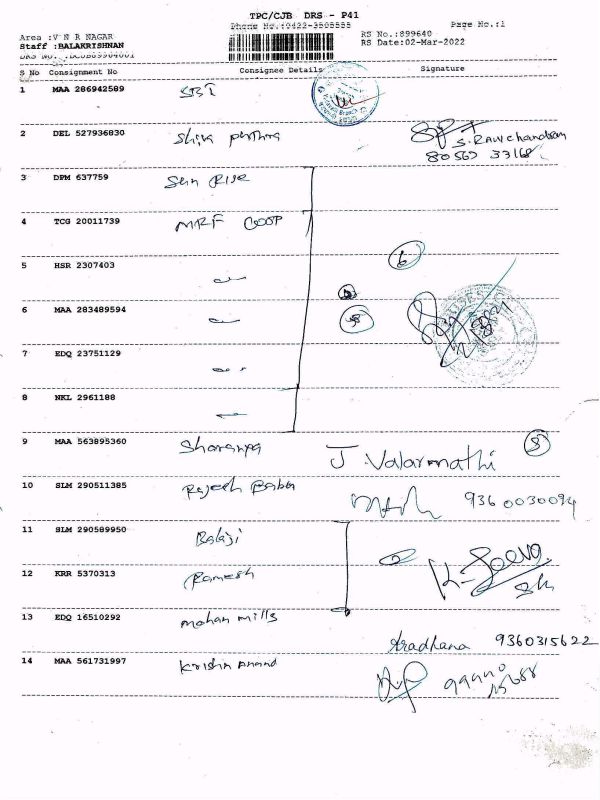 TPC/CJB DRS - P41
Phone No.:0422-3505555 Page No.:1
Area :V N R NAGAR RS No.:899640
Staff :BALAKRISHNAN RS Date:02-Mar-2022
S No Consignment No Consignee Details Signature
1 MAA 286942589 SBI
2 DEL 527936830 Shiva S. Ravichandran
80567 33168
3 DPM 637759 Sun Rise
4 TCG 20011739 MRF COOP
5 HSR 2307403 6
6 MAA 283489594
7 EDQ 23751129
8 NKL 2961188
9 MAA 563895360 Sharanya J. Valarmathi
10 SLM 290511385 Rajesh Babu 9360030094
11 SLM 290589950 Balaji
12 KRR 5370313 Ramesh
13 EDQ 16510292 Mohan mills
Aradhana 9360315622
14 MAA 561731997 Krishn Anand